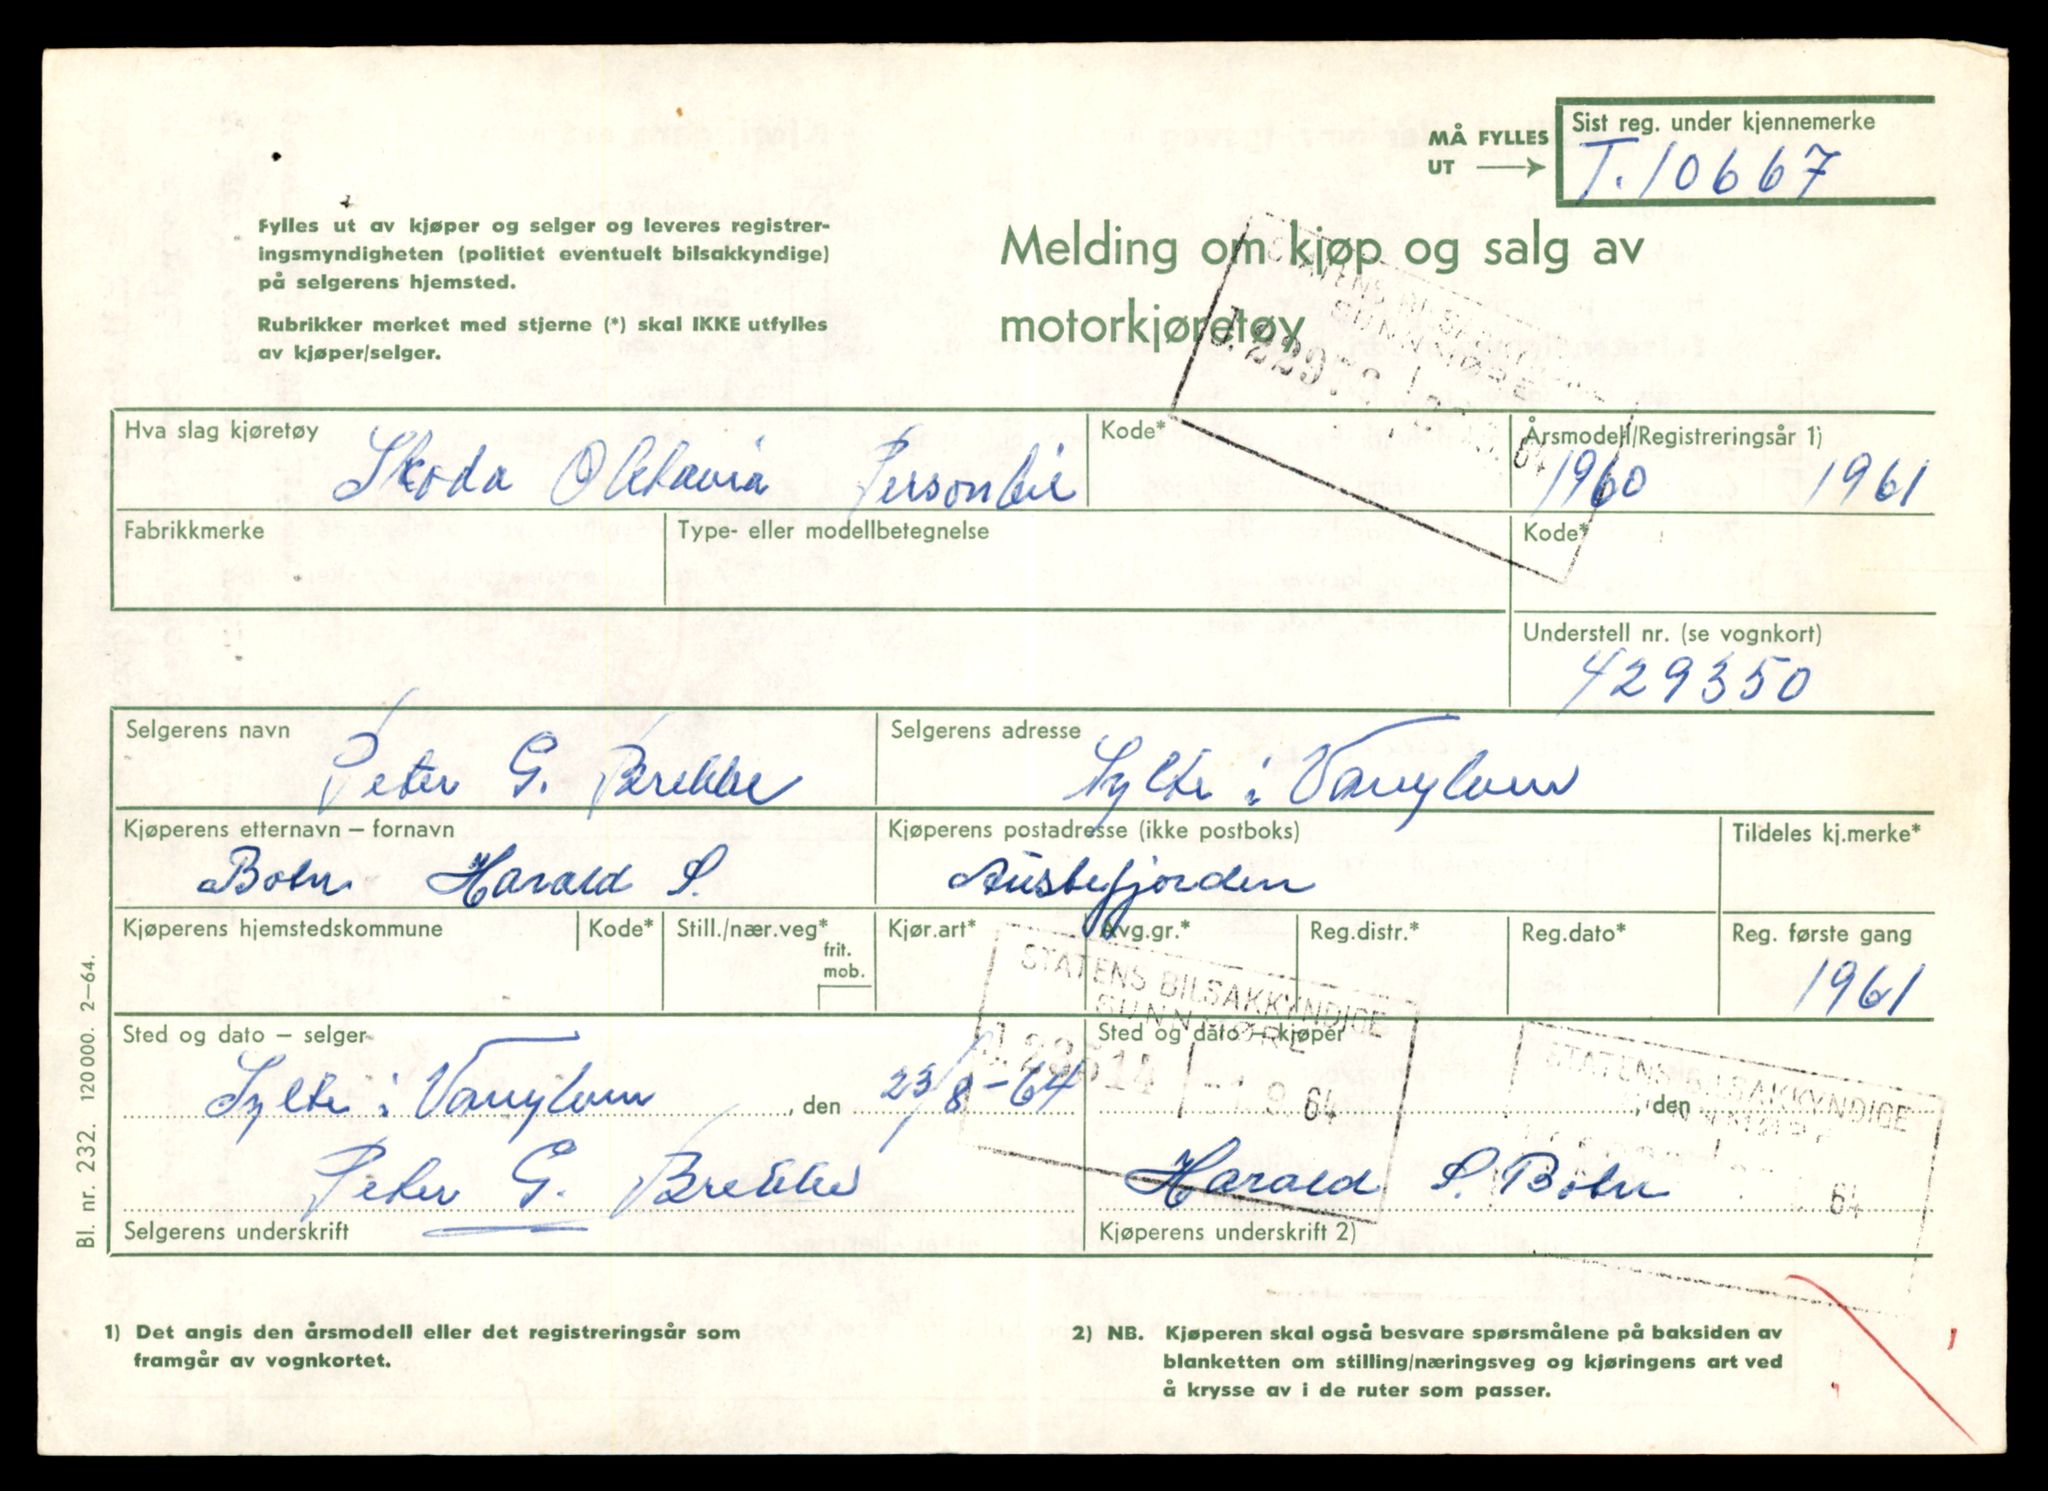 MÅ FYLLES
UT
Sist reg. under kjennemerke
T. 10667
Fylles ut av kjøper og selger og leveres registrer-
ingsmyndigheten (politiet eventuelt bilsakkyndige)
på selgerens hjemsted.
Rubrikker merket med stjerne (*) skal IKKE utfylles
av kjøper/selger.
Melding om kjøp og salg av
motorkjøretøy
STATENS BILSAKKYNDIGE
SUNNMØRE
64
Hva slag kjøretøy
Skoda Oktavia Personbil
Kode*
Årsmodell/Registreringsår 1)
1960 1961
Fabrikkmerke
Type- eller modellbetegnelse
Kode*
Understell nr. (se vognkort)
429350
Selgerens navn
Peter G. Brekke
Selgerens adresse
Sylte i Vanylven
Kjøperens etternavn – fornavn
Harald S.
Kjøperens postadresse (ikke postboks)
Austefjorden
Tildeles kj.merke*
Kjøperens hjemstedskommune
Kode*
Still./nær.veg*
frit.
mob.
Kjør.art*
Avg.gr.*
Reg.distr.*
Reg.dato*
Reg. første gang
1961
STATENS BILSAKKYNDIGE
SUNNMØRE
-1.9.64
Sted og dato – selger
Sylte i Vanylven, den 23/8-64
Sted og dato – kjøper
, den
STATENS BILSAKKYNDIGE
SUNNMØRE
64
Peter G. Brekke
Harald S.
Selgerens underskrift
Kjøperens underskrift 2)
Bl. nr. 232. 120000. 2–64.
1) Det angis den årsmodell eller det registreringsår som
framgår av vognkortet.
2) NB. Kjøperen skal også besvare spørsmålene på baksiden av
blanketten om stilling/næringsveg og kjøringens art ved
å krysse av i de ruter som passer.